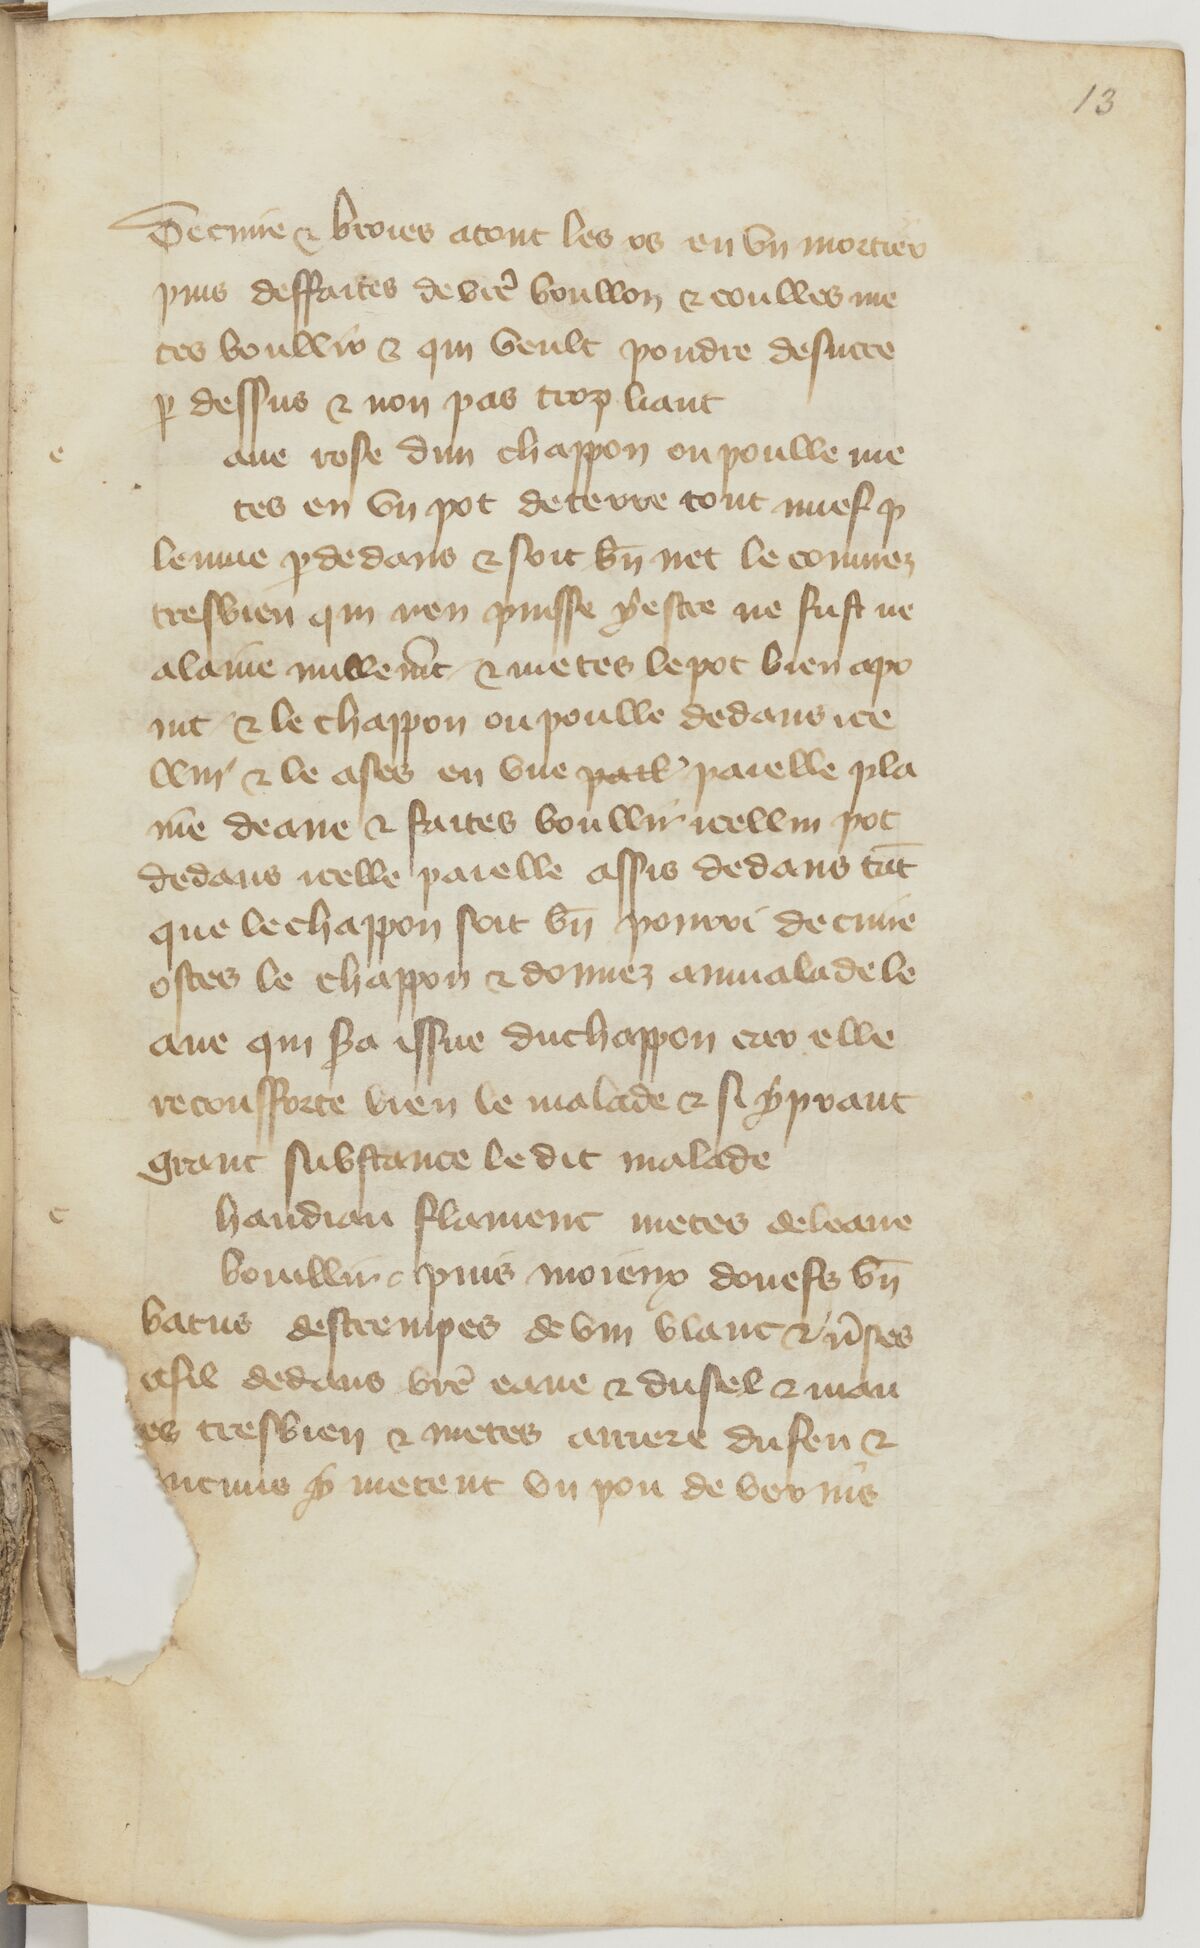 13
De cuire & broies atout les os en vn mortier
puis deffaites de vrē boullon & coulles me
tes boullir & qui veult poudre de sucre
p dessus & non pas trop liant
e
aue rose dun chappon ou poulle me
tes en vn pot de terre tout nuef p
lenme p dedans & soit bn̄ net le couurez
tresbien qui nen puisse yestre ne fust ne
alaine nullemēt & metes le pot bien apo
int & le chappon ou poulle dedans ice
llui & le ases en vne paielle pla
ine de aue & faites boullir icellui pot
dedans icelle paielle assis dedans tāt
que le chappon soit bn̄ pourri de cuire
ostes le chappon & donnez au malade le
aue qui sa issue du chappon car elle
reconfforte bien le malade & si y prant
grant substance le dit malade
c
haudiau flament metes de leaue
bouillir puis moieux douefs bn̄
batus destrempes de vin blanc & v̄ses
a fil dedans vrē eaue & du sel & mou
es tresbien & metes arriere du feu &
aucuns y metent vn pou de verius